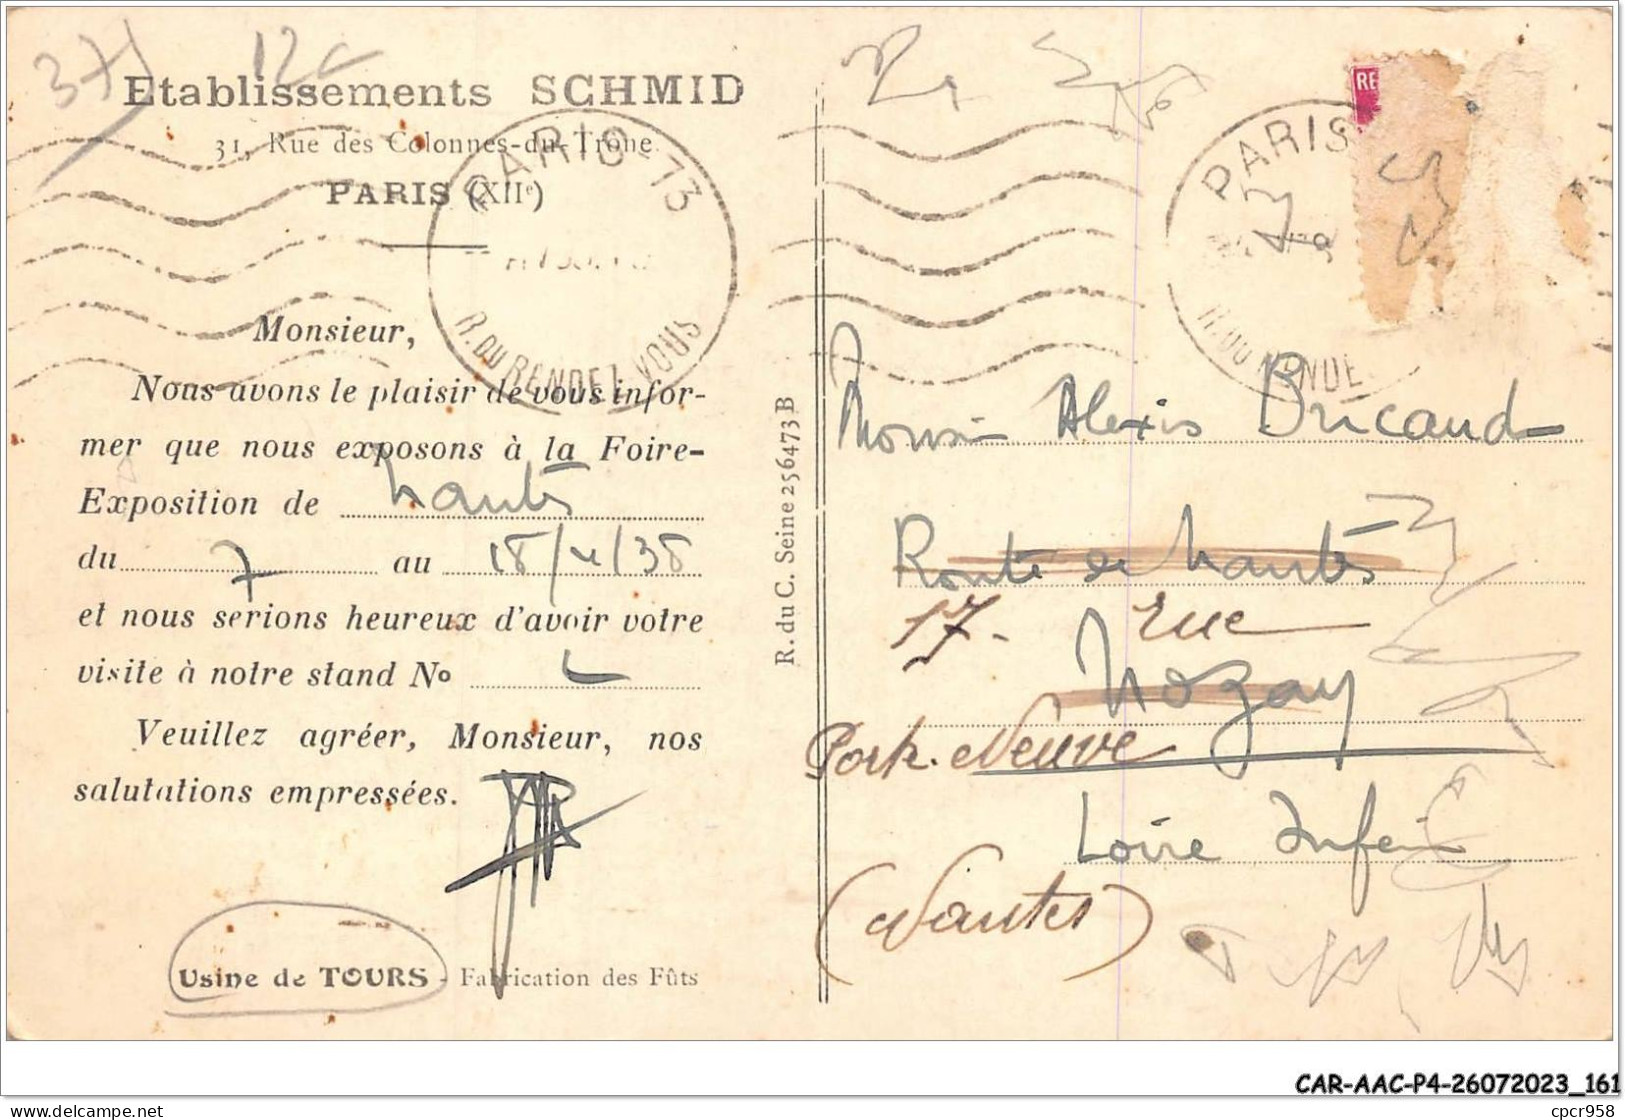 12c
Etablissements SCHMID
31, Rue des Colonnes-du-Trône
PARIS (XIIe)
PARIS-13
R. DU RENDEZ VOUS
Monsieur,
Nous avons le plaisir de vous infor-
mer que nous exposons à la Foire-
Exposition de Nantes
du 7 au 18/4/38
et nous serions heureux d'avoir votre
visite à notre stand No
Veuillez agréer, Monsieur, nos
salutations empressées.
Usine de TOURS - Fabrication des Fûts
R. du C. Seine 256473 B
RE
PARIS
R. DU RENDE
Monsieur Alexis Bricaud
Route de Nantes
17. rue
Nozay
Porte-Neuve
Loire Infer
(Nantes)
CAR-AAC-P4-26072023_161
delcampe.net
cpcr958